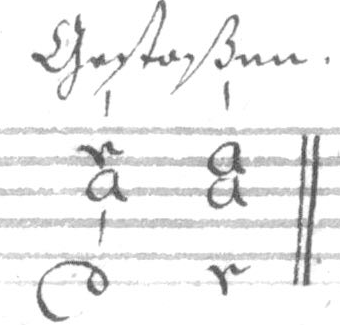 Gestoßen.
r a
a a
d r